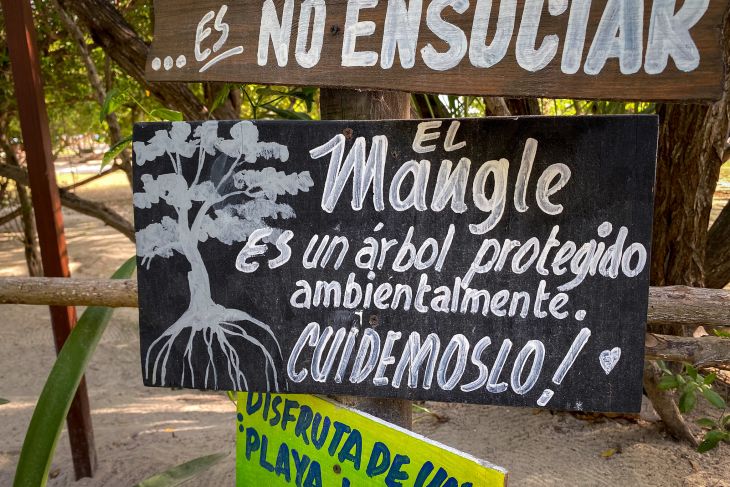 ...ES NO ENSUCIAR
EL
Mangle
Es un árbol protegido
ambientalmente.
CUIDEMOSLO!
DISFRUTA DE UN
PLAYA